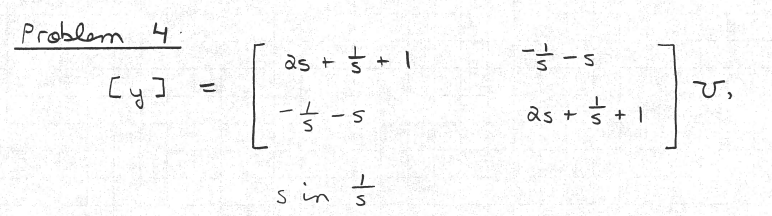 Problem 4.
[y] = [ 2s + 1/s + 1 -1/s - s ] v,
[ -1/s - s 2s + 1/s + 1 ]
s in 1/s